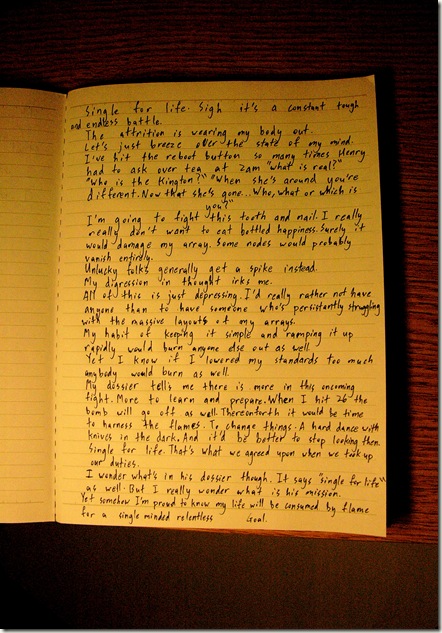 Single for life. Sigh it's a constant tough
and endless battle.
The attrition is wearing my body out.
Let's just breeze over the state of my mind.
I've hit the reboot button so many times Henry
had to ask over tea at 2am "what is real?"
"Who is the Kington?" "When she's around you're
different. Now that she's gone... Who, what or which is
you?"
I'm going to fight this tooth and nail. I really
really don't want to eat bottled happiness. Surely it
would damage my array. Some nodes would probably
vanish entirely.
Unlucky folks generally get a spike instead.
My digression in thought irks me.
All of this is just depressing. I'd really rather not have
anyone than to have someone who's persistantly struggling
with the massive layouts of my arrays.
My habit of keeping it simple and ramping it up
rapidly would burn anyone else out as well.
Yet I know if I lowered my standards too much
anybody would burn as well.
My dossier tells me there is more in this oncoming
fight. More to learn and prepare. When I hit 26 the
bomb will go off as well. Thereonforth it would be time
to harness the flames. To change things. A hard dance with
knives in the dark. And it'd be better to stop looking then.
Single for life. That's what we agreed upon when we took up
our duties.
I wonder what's in his dossier though. It says "single for life"
as well. But I really wonder what is his mission.
Yet somehow I'm proud to know my life will be consumed by flame
for a single minded relentless goal.